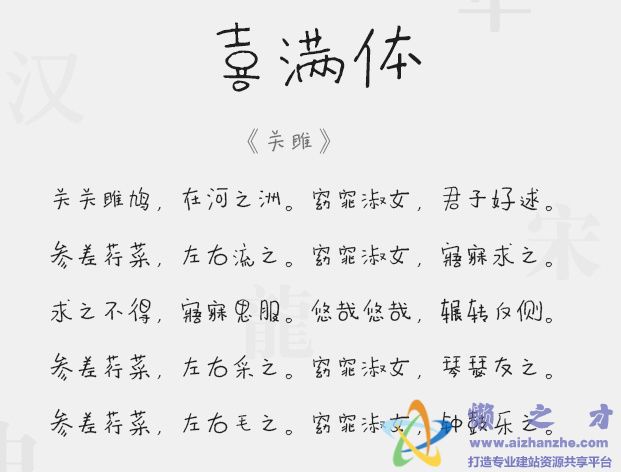 汉
喜满体
《关雎》
关关雎鸠，在河之洲。窈窕淑女，君子好述。
宋
参差荇菜，左右流之。窈窕淑女，寤寐求之。
求之不得，寤寐思服。悠哉悠哉，辗转反侧。
龍
参差荇菜，左右采之。窈窕淑女，琴瑟友之。
参差荇菜，左右毛之。窈窕淑女，钟鼓乐之。
懒之才
www.aizhanzhe.com
打造专业建站资源共享平台